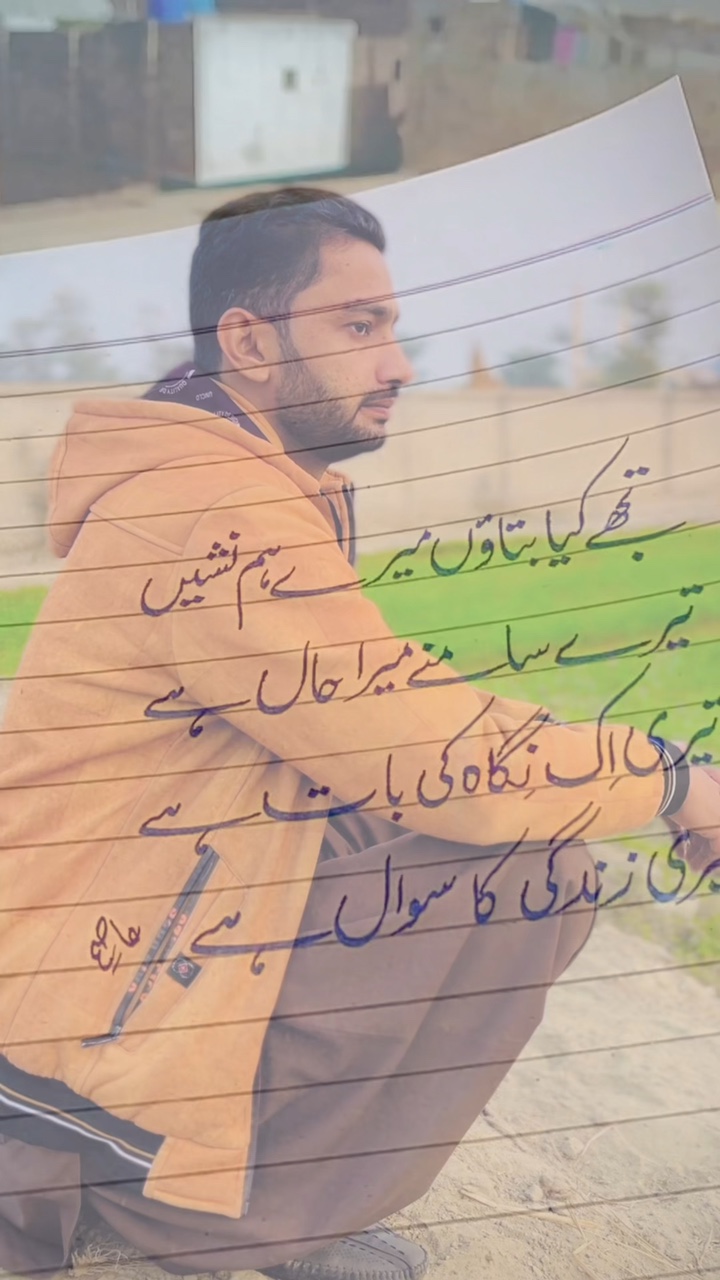 تجھے کیا بتاؤں میرے ہم نشیں
تیرے سامنے میرا حال ہے
تیری اِک نِگاہ کی بات ہے
میری زندگی کا سوال ہے